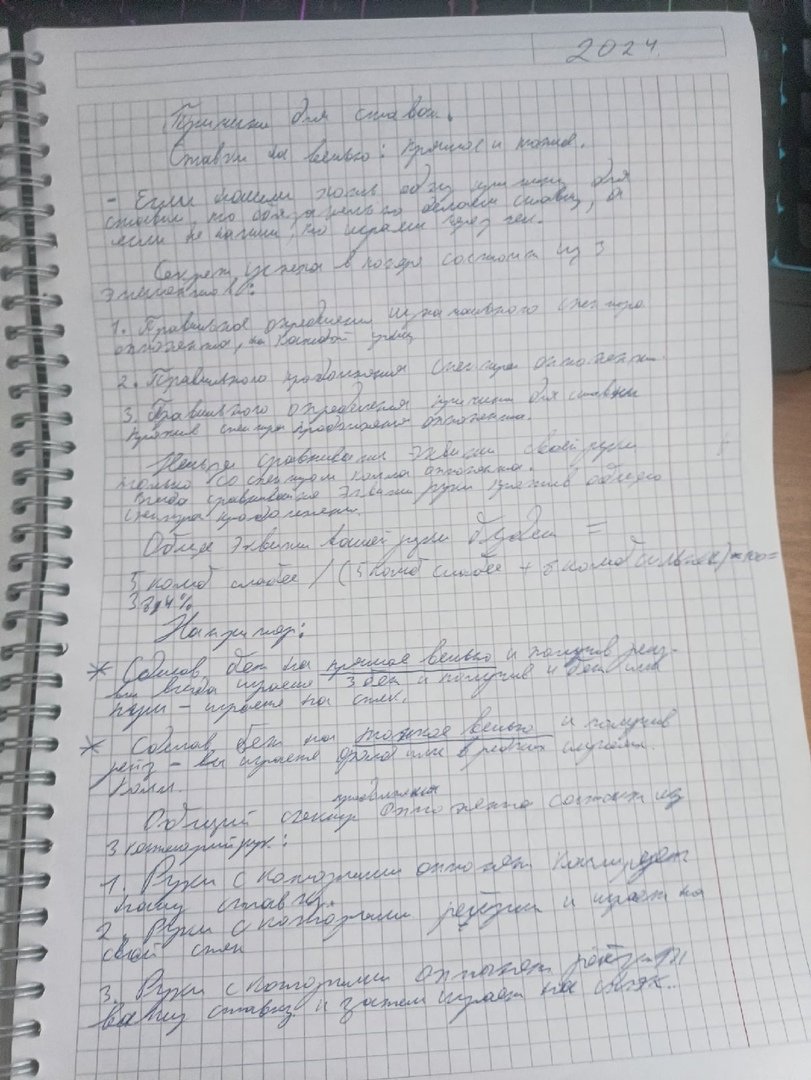 2024.
Причины для ставок.
Ставки на велью: прямое и тонкое.
- Если нашли хоть одну причину для
ставки, то обязательно делаем ставку, а
если не нашли, то играем через чек.
Секрет успеха в покере состоит из 3
элементов:
1. Правильное определение изначального спектра
оппонента, на каждой улице
2. Правильного продолжения спектра оппонента.
3. Правильного определения причины для ставки
против спектра продолжения оппонента.
Нельзя сравнивать эквити своей руки
только со спектром колла оппонента.
Всегда сравнивайте эквити руки против общего
спектра продолжения.
Общее эквити вашей руки будет =
5 комб слабее / (5 комб слабее + 8 комб сильнее) * 100 =
38,4%
Например:
* Сделав бет на прямое велью и получив рейз-
вы всегда играете 3бет и получив 4бет или
пуш - играете на стек.
* Сделав бет на тонкое велью и получив
рейз - вы играете фолд или в редких случаях
колл.
продолжения
Общий спектр оппонента состоит из
3 категорий рук:
1. Руки с которыми оппонент коллирует
вашу ставку.
2. Руки с которыми рейзит и играет на
свой стек
3. Руки с которыми оппонент рейзит
вашу ставку и затем играет на стек.